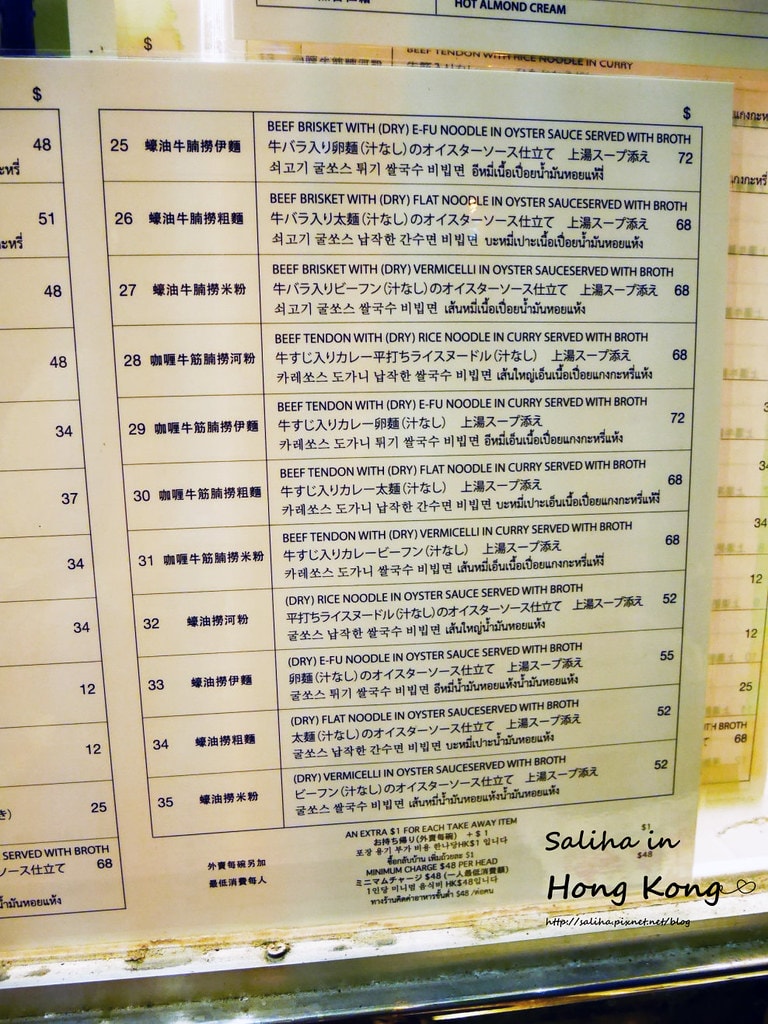 HOT ALMOND CREAM
$
BEEF TENDON WITH RICE NOODLE IN CURRY
$
48
51
48
48
34
37
34
34
12
12
25
SERVED WITH BROTH
68
$
25 蠔油牛腩撈伊麵
BEEF BRISKET WITH (DRY) E-FU NOODLE IN OYSTER SAUCE SERVED WITH BROTH
牛バラ入り卵麺(汁なし)のオイスターソース仕立て 上湯スープ添え 72
쇠고기 굴쏘스 튀기 쌀국수 비빔면 อีหมี่เนื้อเปื่อยน้ำมันหอยแห้งี่
26 蠔油牛腩撈粗麵
BEEF BRISKET WITH (DRY) FLAT NOODLE IN OYSTER SAUCESERVED WITH BROTH
牛バラ入り太麺(汁なし)のオイスターソース仕立て 上湯スープ添え 68
쇠고기 굴쏘스 납작한 간수면 비빔면 บะหมี่เปาะเนื้อเปื่อยน้ำมันหอยแห้ง
27 蠔油牛腩撈米粉
BEEF BRISKET WITH (DRY) VERMICELLI IN OYSTER SAUCESERVED WITH BROTH
牛バラ入りビーフン(汁なし)のオイスターソース仕立て 上湯スープ添え 68
쇠고기 굴쏘스 쌀국수 비빔면 เส้นหมี่เนื้อเปื่อยน้ำมันหอยแห้ง
28 咖喱牛筋腩撈河粉
BEEF TENDON WITH (DRY) RICE NOODLE IN CURRY SERVED WITH BROTH
牛すじ入りカレー平打ちライスヌードル(汁なし) 上湯スープ添え 68
카레쏘스 도가니 납작한 쌀국수 비빔면 เส้นใหญ่เอ็นเนื้อเปื่อยแกงกะหรี่แห้ง
29 咖喱牛筋腩撈伊麵
BEEF TENDON WITH (DRY) E-FU NOODLE IN CURRY SERVED WITH BROTH
牛すじ入りカレー卵麺(汁なし) 上湯スープ添え 72
카레쏘스 도가니 튀기 쌀국수 비빔면 อีหมี่เอ็นเนื้อเปื่อยแกงกะหรี่แห้ง
30 咖喱牛筋腩撈粗麵
BEEF TENDON WITH (DRY) FLAT NOODLE IN CURRY SERVED WITH BROTH
牛すじ入りカレー太麺(汁なし) 上湯スープ添え 68
카레쏘스 도가니 납작한 간수면 비빔면 บะหมี่เปาะเอ็นเนื้อเปื่อยแกงกะหรี่แห้งี่
31 咖喱牛筋腩撈米粉
BEEF TENDON WITH (DRY) VERMICELLI IN CURRY SERVED WITH BROTH
牛すじ入りカレービーフン(汁なし) 上湯スープ添え 68
카레쏘스 도가니 쌀국수 비빔면 เส้นหมี่เอ็นเนื้อเปื่อยแกงกะหรี่แห้ง
32 蠔油撈河粉
(DRY) RICE NOODLE IN OYSTER SAUCE SERVED WITH BROTH
平打ちライスヌードル(汁なし)のオイスターソース仕立て 上湯スープ添え 52
굴쏘스 납작한 쌀국수 비빔면 เส้นใหญ่น้ำมันหอยแห้ง
33 蠔油撈伊麵
(DRY) E-FU NOODLE IN OYSTER SAUCE SERVED WITH BROTH
卵麺(汁なし)のオイスターソース仕立て 上湯スープ添え 55
굴쏘스 튀기 쌀국수 비빔면 อีหมี่น้ำมันหอยแห้งน้ำมันหอยแห้ง
34 蠔油撈粗麵
(DRY) FLAT NOODLE IN OYSTER SAUCESERVED WITH BROTH
太麺(汁なし)のオイスターソース仕立て 上湯スープ添え 52
굴쏘스 납작한 간수면 비빔면 บะหมี่เปาะน้ำมันหอยแห้ง
35 蠔油撈米粉
(DRY) VERMICELLI IN OYSTER SAUCESERVED WITH BROTH
ビーフン(汁なし)のオイスターソース仕立て 上湯スープ添え 52
굴쏘스 쌀국수 비빔면 เส้นหมี่น้ำมันหอยแห้งน้ำมันหอยแห้ง
外賣每碗另加
最低消費每人
AN EXTRA $1 FOR EACH TAKE AWAY ITEM
お持ち帰り(外賣每碗) +$1
포장 용기 부가 비용 한나당HK$1 입니다
ซื้อกลับบ้าน เพิ่มถ้วยละ $1
MINIMUM CHARGE $48 PER HEAD
ミニマムチャージ $48 (一人最低消費額)
1 인당 미니멈 음식비 HK$48입니다
ทางร้านคิดค่าอาหารขั้นต่ำ $48 /ต่อคน
$1
$48
34
12
12
25
68
Saliha in
Hong Kong
http://saliha.pixnet.net/blog